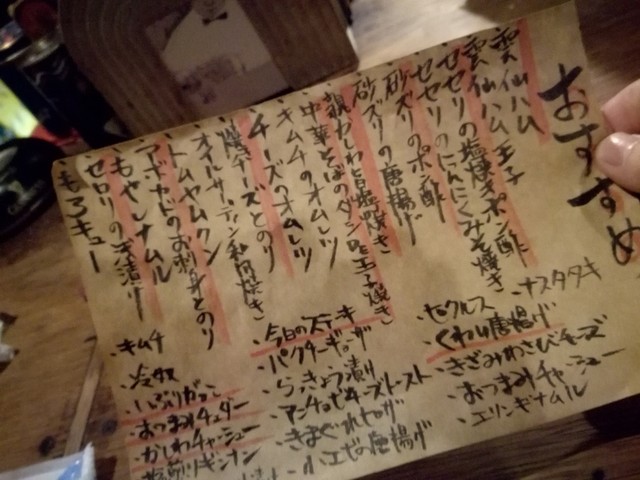 おすすめ
雲仙ハム
雲仙ハム玉子
セセリの塩焼きポン酢
セセリのにんにくみそ焼き
セセリのポン酢
砂ズリの唐揚げ
砂ズリの
親かしわ旨塩焼き
中華そばのダシ
玉子焼き
キムチのオムレツ
チーズのオムレツ
焼チーズとのり
オイルサーディン和風焼き
トムヤムクン
アボカドのお刺身とのり
もやしナムル
セロリの浅漬け
もろキュー
・ナスタタキ
・セクルス
・くわい唐揚げ
・きざみわさびチーズ
・おつまみチャーシュー
・エリンギナムル
・今日のステキ
・パクチーギョーザ
・らっきょう漬け
・アンチョビチーズトースト
・きまぐれピザ
・小エビの唐揚げ
・キムチ
・冷奴
・いぶりがっこ
・おつまみチュダー
・かしわチャーシュー
・塩煎りギンナン